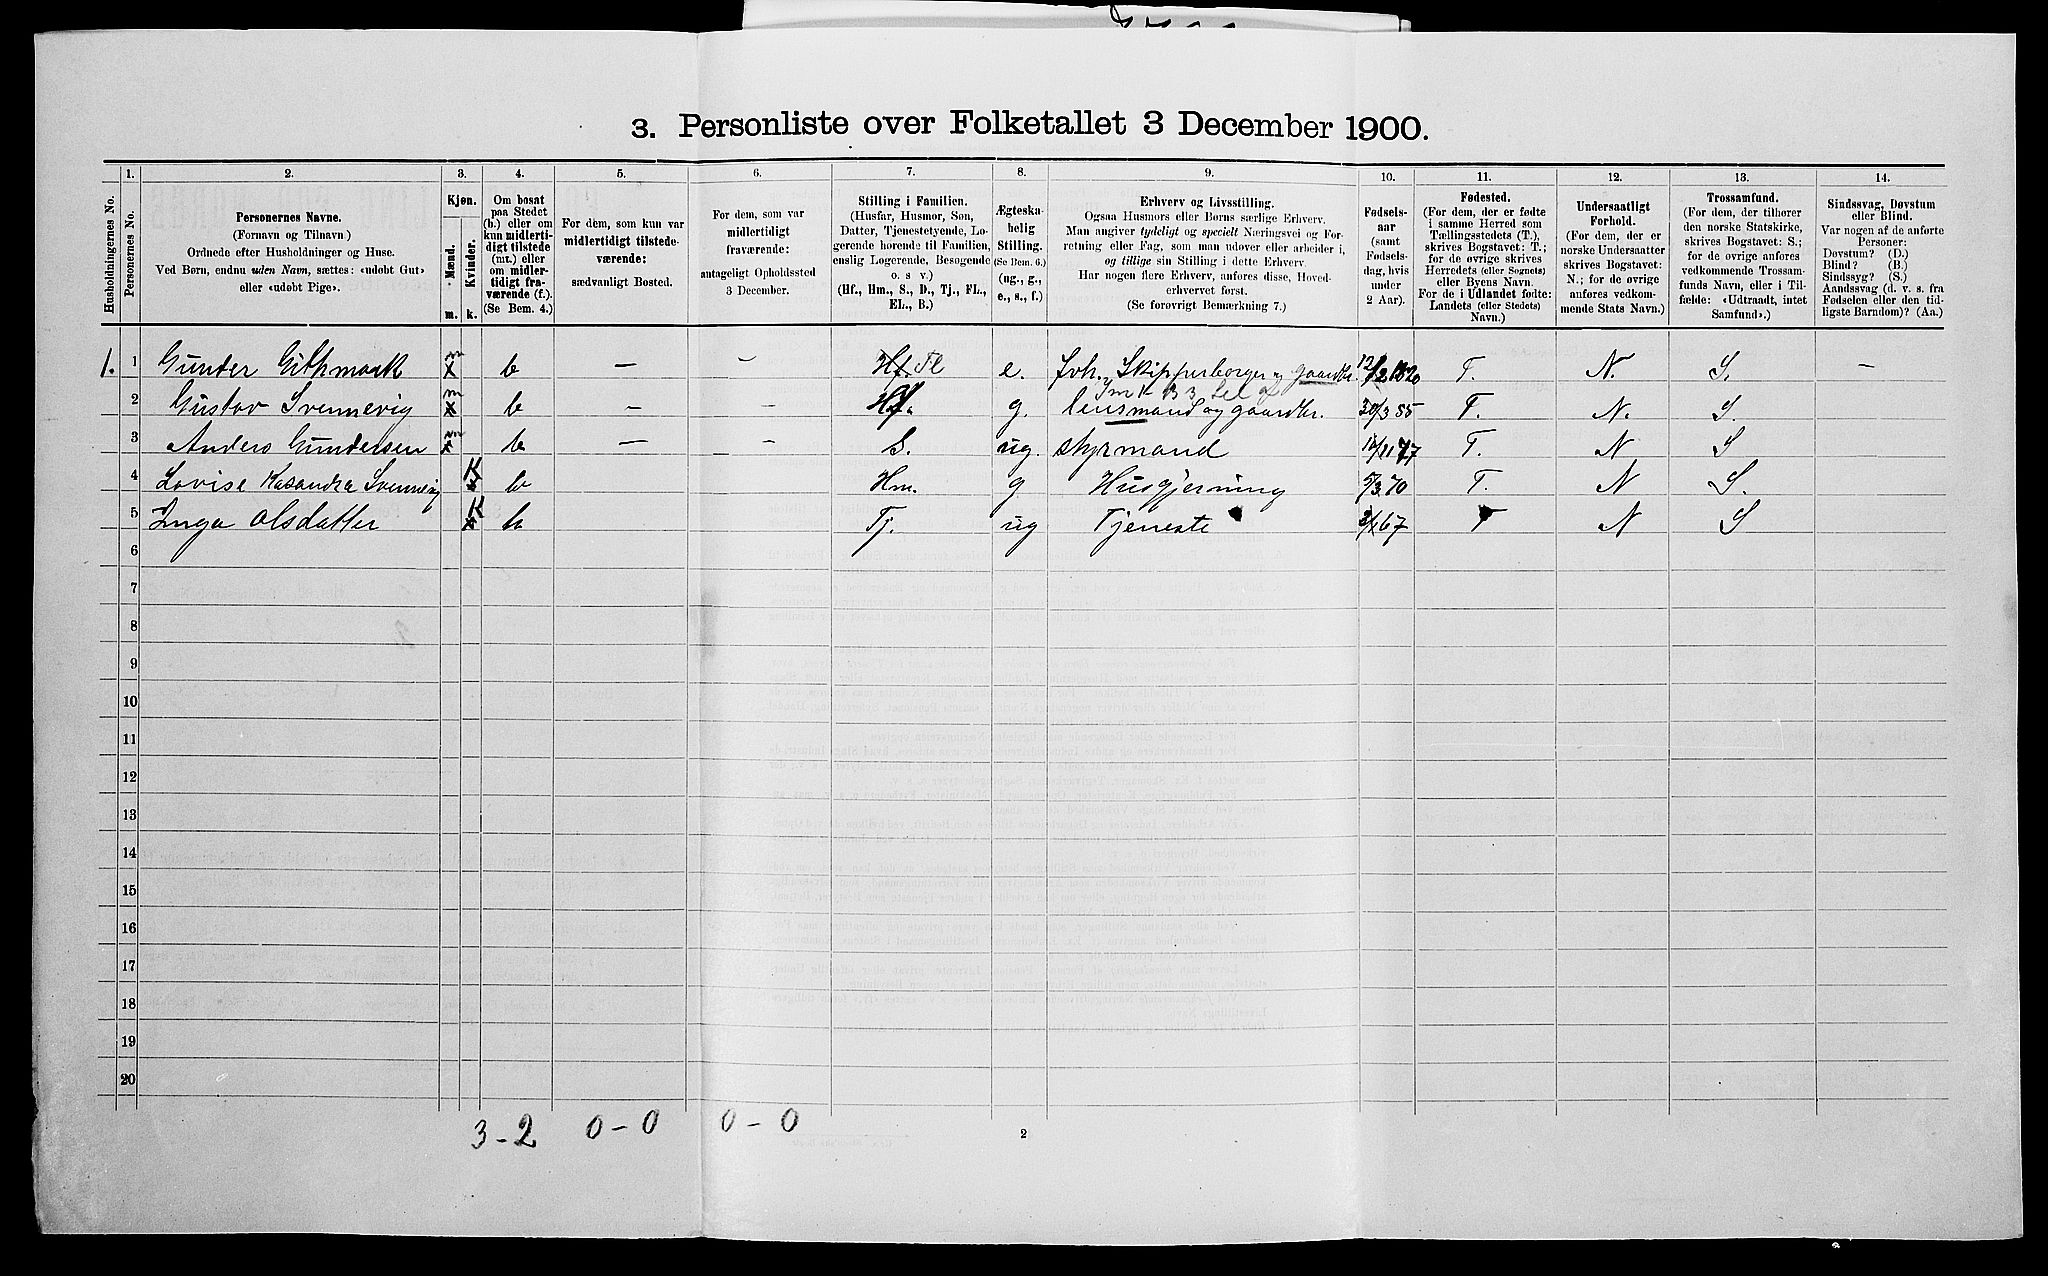 3. Personliste over Folketallet 3 December 1900.
Husholdningernes No.
1.
Personernes No.
2.
Personernes Navne.
(Fornavn og Tilnavn.)
Ordnede efter Husholdninger og Huse.
Ved Børn, endnu uden Navn, sættes: «udøbt Gut»
eller «udøbt Pige».
3.
Kjøn.
Mænd.
Kvinder.
m. k.
4.
Om bosat
paa Stedet
(b.) eller om
kun midlerti-
digt tilstede
(mt.) eller
om midler-
tidigt fra-
værende (f.).
(Se Bem. 4.)
5.
For dem, som kun var
midlertidigt tilstede-
værende:
sædvanligt Bosted.
6.
For dem, som var
midlertidigt
fraværende:
antageligt Opholdssted
3 December.
7.
Stilling i Familien.
(Husfar, Husmor, Søn,
Datter, Tjenestetyende, Lo-
gerende hørende til Familien,
enslig Logerende, Besøgende
o. s v.)
(Hf., Hm., S., D., Tj., FL.,
EL., B.)
8.
Ægteska-
belig
Stilling.
(Se Bem. 6.)
(ug., g.,
e., s., f.)
9.
Erhverv og Livsstilling.
Ogsaa Husmors eller Børns særlige Erhverv.
Man angiver tydeligt og specielt Næringsvei og For-
retning eller Fag, som man udøver eller arbeider i,
og tillige sin Stilling i dette Erhverv.
Har nogen flere Erhverv, anføres disse, Hoved-
erhvervet først.
(Se forøvrigt Bemærkning 7.)
10.
Fødsels-
aar
(samt
Fødsels-
dag, hvis
under
2 Aar).
11.
Fødested.
(For dem, der er fødte
i samme Herred som
Tællingsstedets (T.),
skrives Bogstavet: T.;
for de øvrige skrives
Herredets (eller Sognets)
eller Byens Navn.
For de i Udlandet fødte:
Landets (eller Stedets)
Navn.)
12.
Undersaatligt
Forhold.
(For dem, der er
norske Undersaatter
skrives Bogstavet:
N.; for de øvrige
anføres vedkom-
mende Stats Navn.)
13.
Trossamfund.
(For dem, der tilhører
den norske Statskirke,
skrives Bogstavet: S.;
for de øvrige anføres
vedkommende Trossam-
funds Navn, eller i Til-
fælde: «Udtraadt, intet
Samfund».)
14.
Sindssvag, Døvstum
eller Blind.
Var nogen af de anførte
Personer:
Døvstum? (D.)
Blind? (B.)
Sindssyg? (S.)
Aandssvag (d. v. s. fra
Fødselen eller den tid-
ligste Barndom)? (Aa.)
1. 1 Gunder Githmark m x b — — Hf. Fl e. fvh. Skipperborger og Gaardbr. 12/2 1820 T. N. S. —
2 Gustav Svennevig m x b — — Hf. g. lensmand og gaardbr. 30/3 55 T. N. S.
3 Anders Gundersen m x b — — S. ug. styrmand 77 T. N S
4 Lovise Kasandra Svennevig K x b Hm. g Husgjerning 5/3 70 T. N S.
5 Inga Olsdatter K x b Tj. ug Tjeneste 67 T N S
6
7
8
9
10
11
12
13
14
15
16
17
18
19
20
3 - 2 0 - 0 0 - 0
2